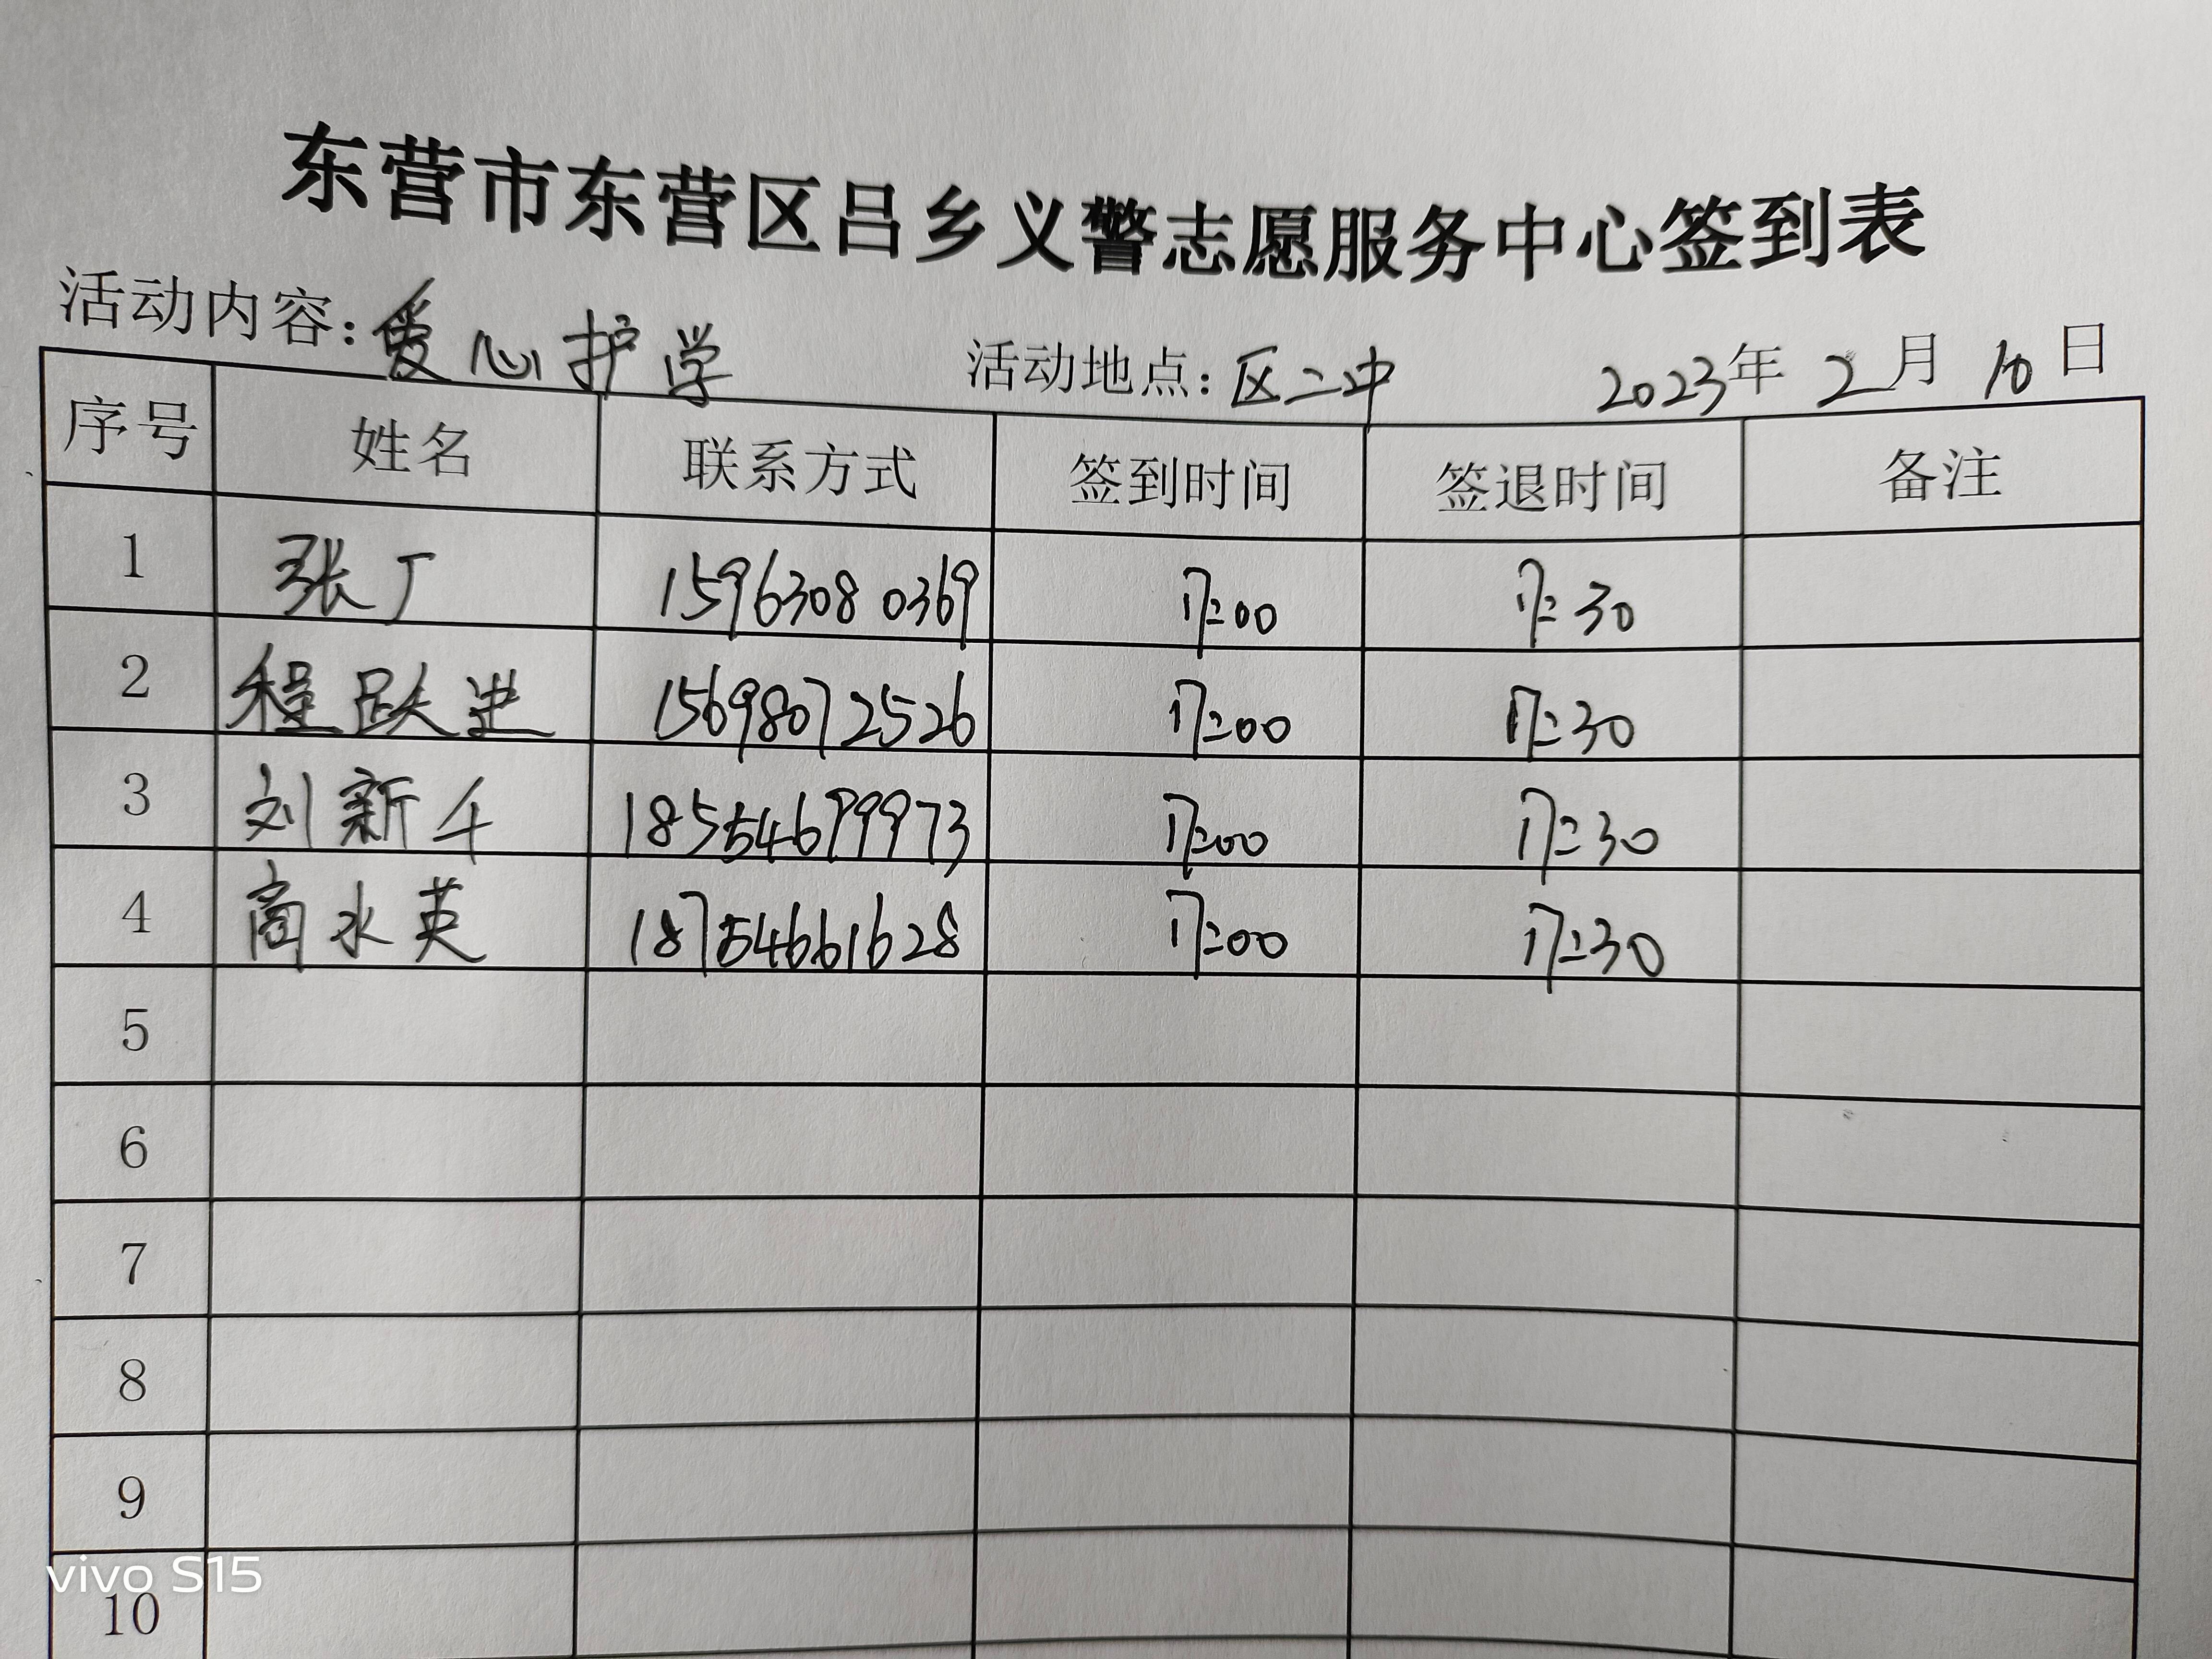 东营市东营区吕乡义警志愿服务中心签到表
活动内容：爱心护学 活动地点：区二中 2023年 2月 10日
序号 姓名 联系方式 签到时间 签退时间 备注
1 张厂 15963080369 17:00 17:30
2 程跃进 15698072526 17:00 17:30
3 刘新 18554699973 17:00 17:30
4 商水英 18754661628 17:00 17:30
5
6
7
8
9
10
vivo S15